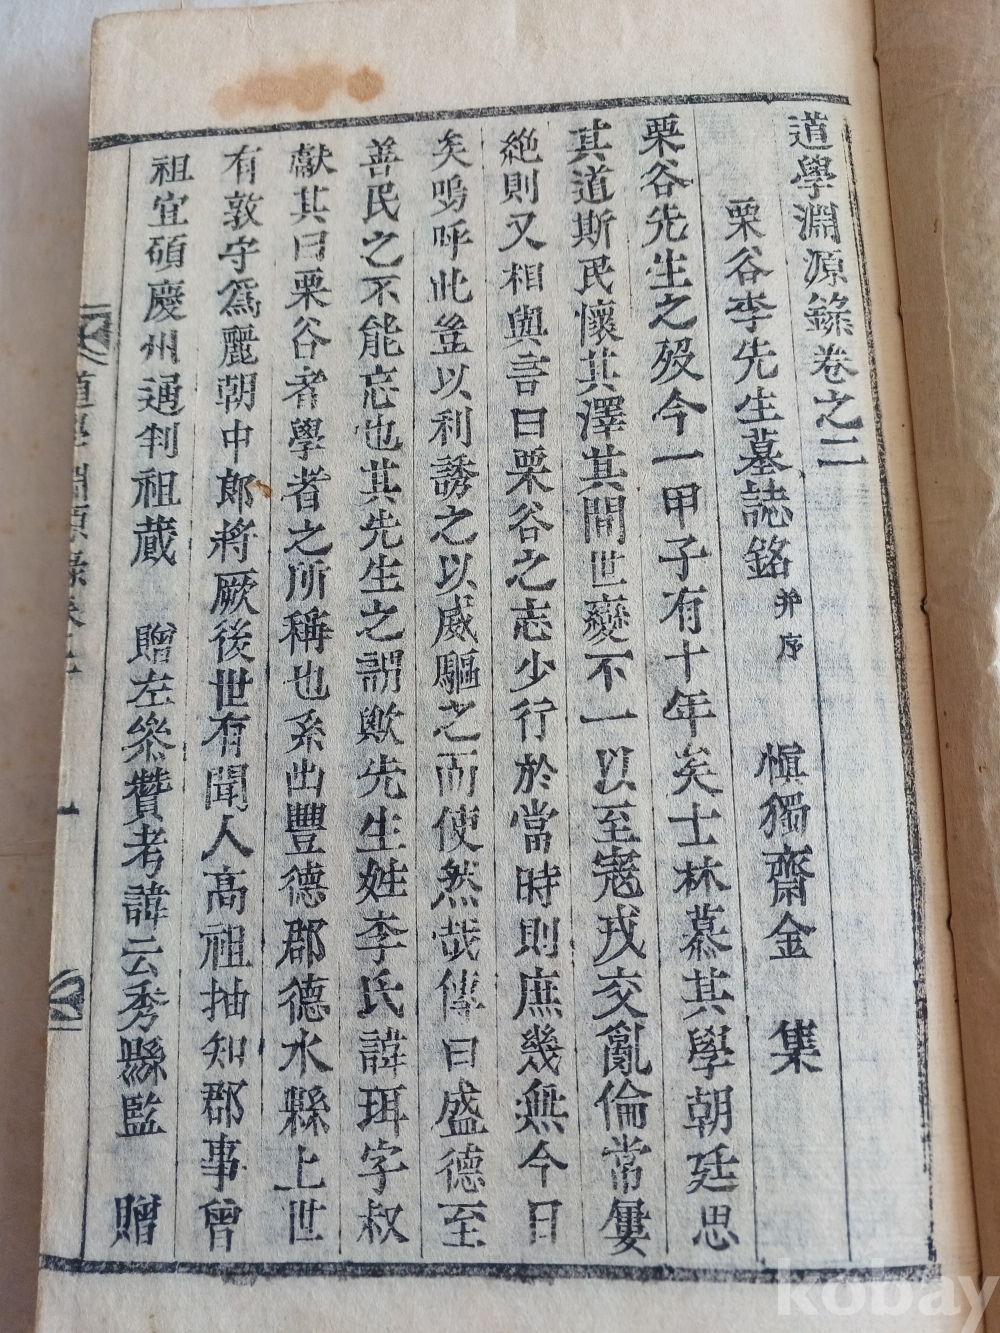 道學淵源錄卷之二
栗谷李先生墓誌銘 并序 愼獨齋金 集
栗谷先生之歿今一甲子有十年矣士林慕其學朝廷思
其道斯民懷其澤其間世變不一以至寇戎交亂倫常屢
絶則又相與言曰栗谷之志少行於當時則庶幾無今日
矣嗚呼此豈以利誘之以威驅之而使然哉傳曰盛德至
善民之不能忘也其先生之謂歟先生姓李氏諱珥字叔
獻其曰栗谷者學者之所稱也系出豐德郡德水縣上世
有敦守爲麗朝中郞將厥後世有聞人高祖抽知郡事曾
祖宜碩慶州通判祖蕆 贈左參贊考諱元秀縣監 贈
道學淵源錄卷之二
一
kobay